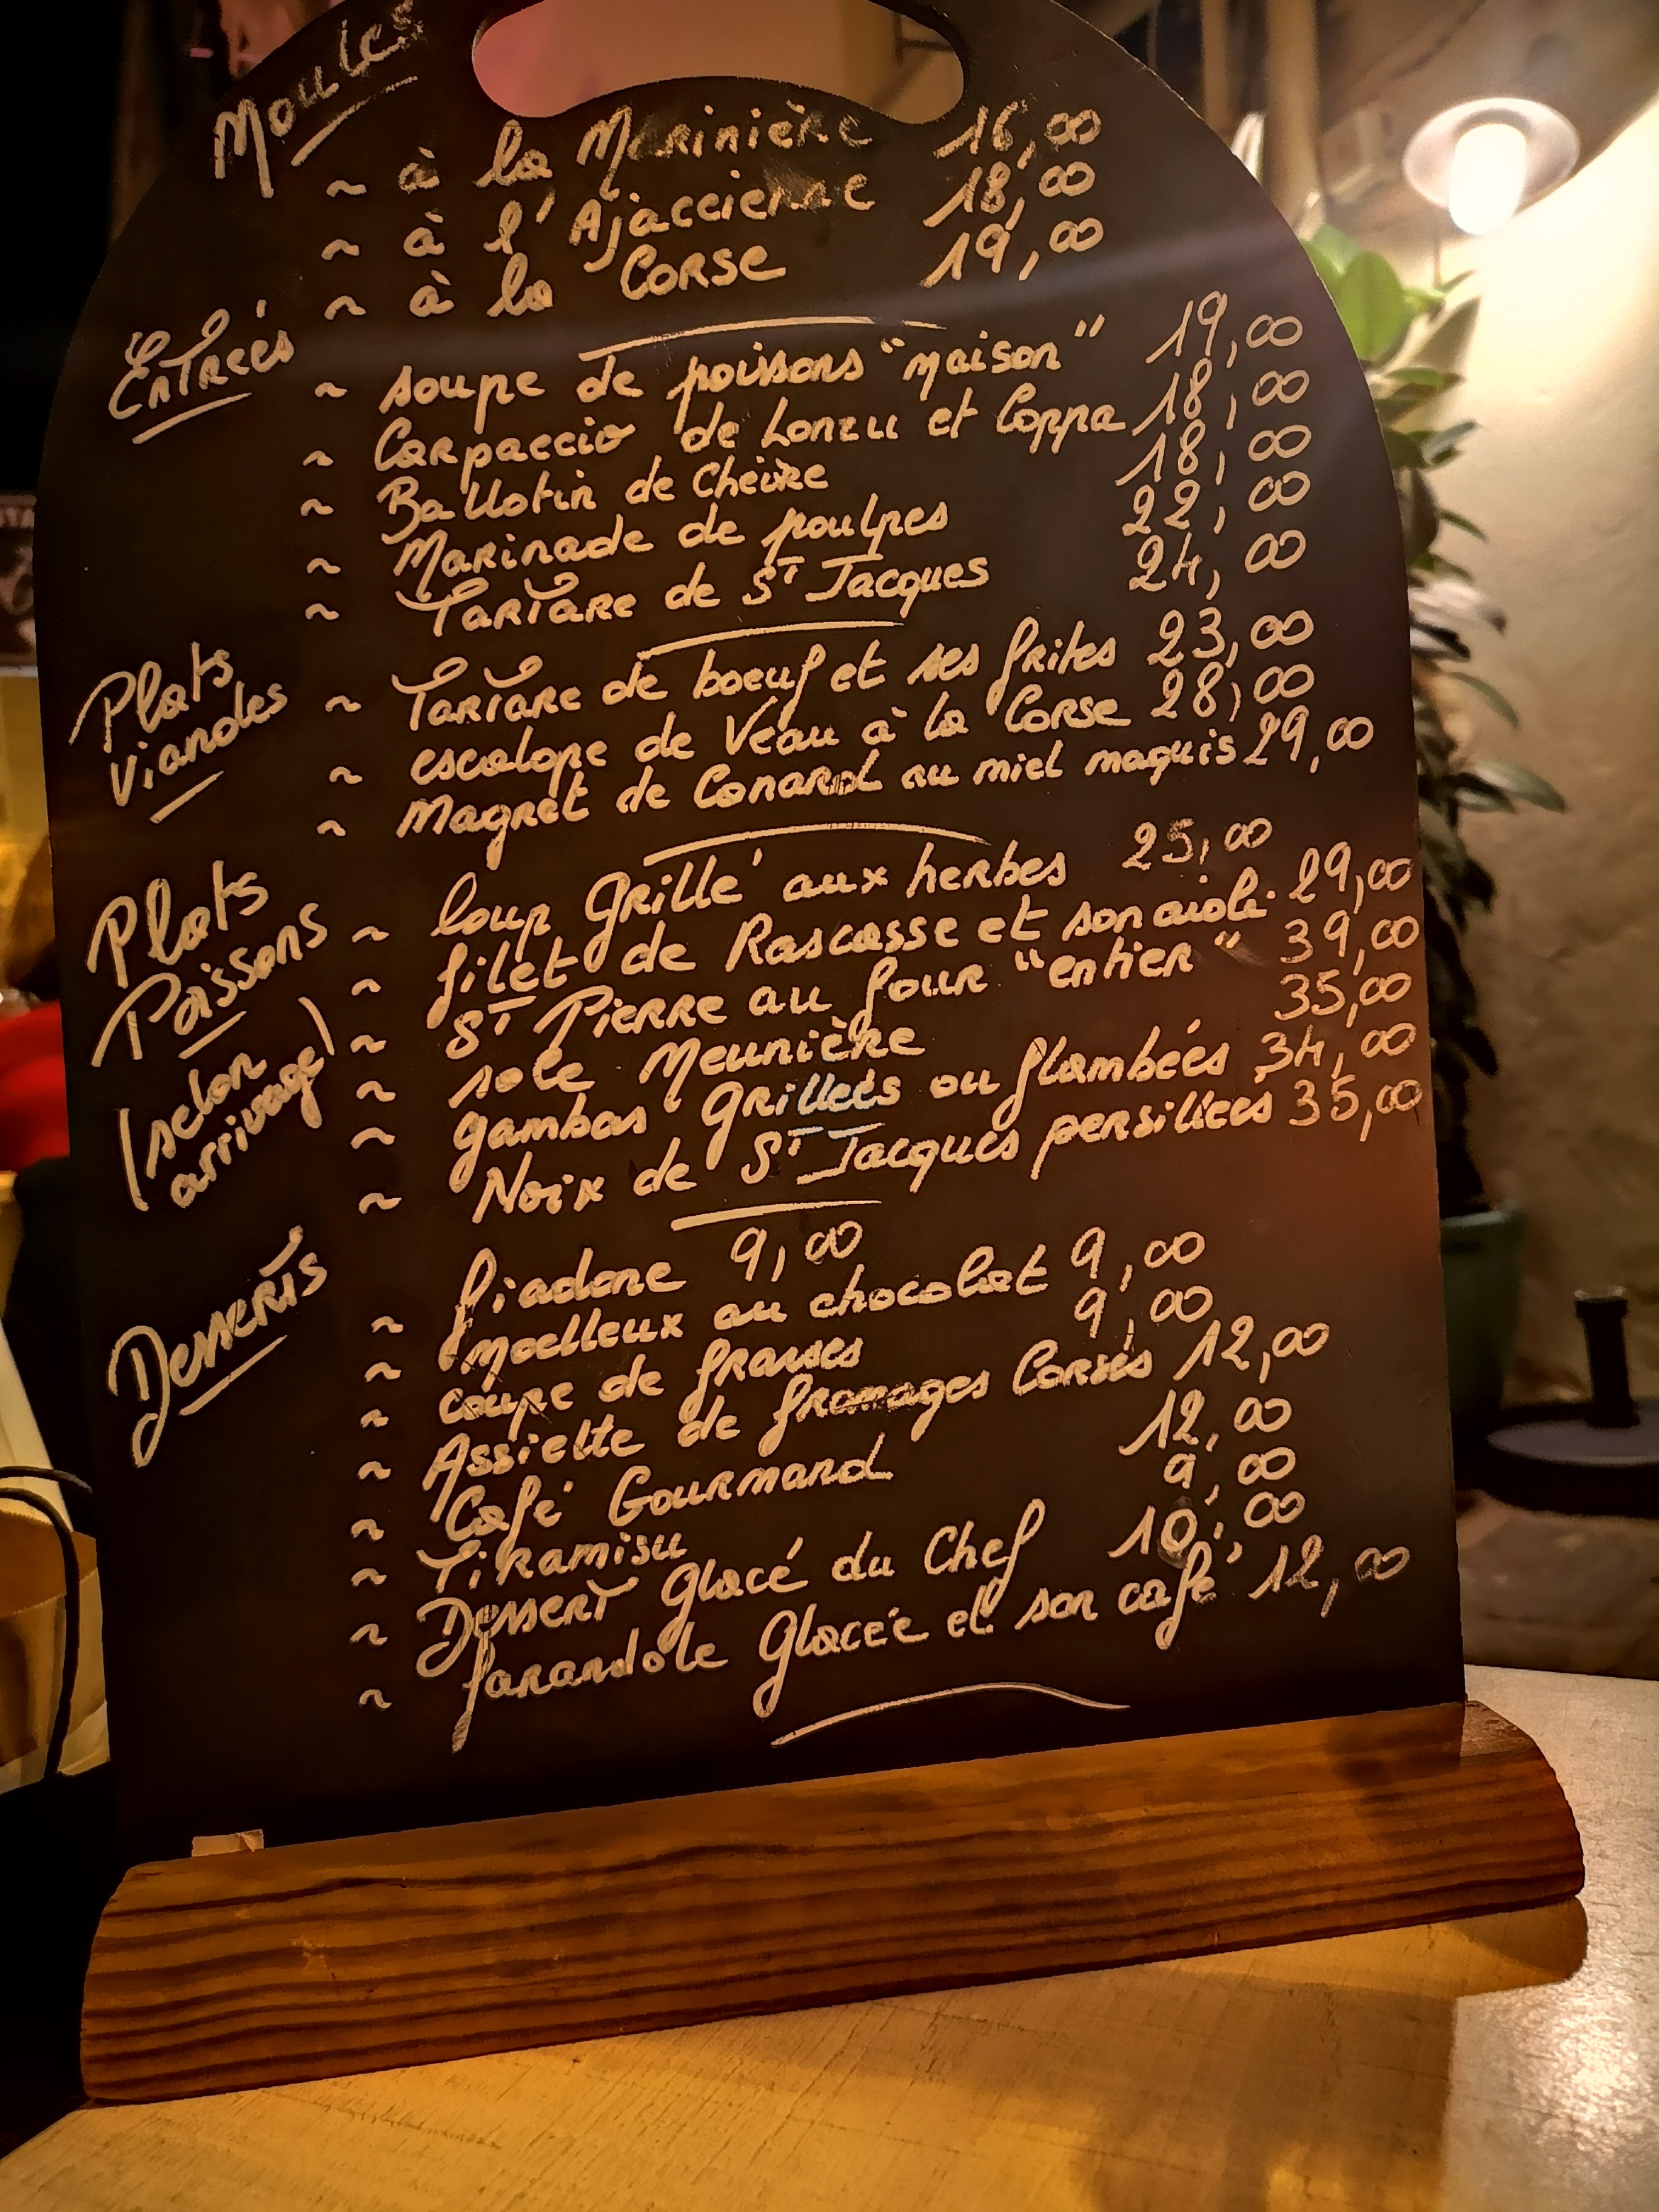 Moules
~ à la Marinière 16,00
~ à l'Ajaccienne 18,00
~ à la Corse 19,00
Entrées
~ soupe de poissons "maison" 19,00
~ Carpaccio de Lonzu et Coppa 18,00
~ Ballotin de Chèvre 18,00
~ Marinade de poulpes 22,00
~ Tartare de St Jacques 24,00
Plats
Viandes
~ Tartare de boeuf et ses frites 23,00
~ escalope de Veau à la Corse 28,00
~ Magret de Canard au miel maquis 29,00
Plats
Poissons
(selon
arrivage)
~ loup Grillé aux herbes 25,00
~ filet de Rascasse et son aïoli 29,00
~ St Pierre au four "entier" 39,00
~ sole Meunière 35,00
~ gambas Grillées ou flambées 34,00
~ Noix de St Jacques persillées 35,00
Desserts
~ fiadone 9,00
~ moelleux au chocolat 9,00
~ coupe de fraises 9,00
~ Assiette de fromages Corses 12,00
~ Café Gourmand 12,00
~ Tiramisu 9,00
~ Dessert Glacé du Chef 10,00
~ farandole Glacée et son café 12,00